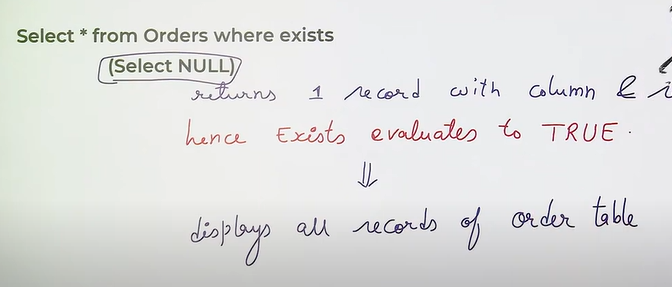 Select * from Orders where exists
(Select NULL)
returns 1 record with column &
hence Exists evaluates to TRUE.
⇓
displays all records of order table